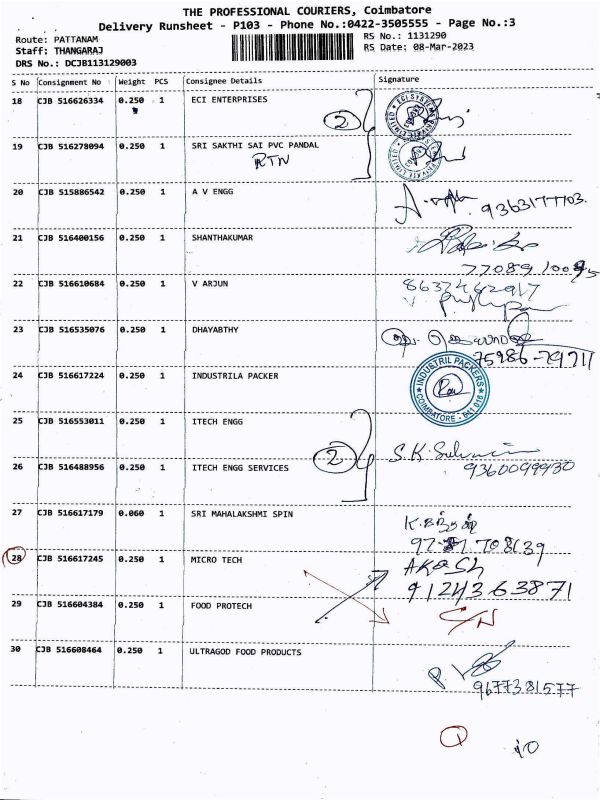 THE PROFESSIONAL COURIERS, Coimbatore
Delivery Runsheet - P103 - Phone No.:0422-3505555 - Page No.:3
Route: PATTANAM
RS No.: 1131290
Staff: THANGARAJ
RS Date: 08-Mar-2023
DRS No.: DCJB113129003
S No Consignment No Weight PCS Consignee Details Signature
18 CJB 516626334 0.250 1 ECI ENTERPRISES
2
19 CJB 516278094 0.250 1 SRI SAKTHI SAI PVC PANDAL
RTN
20 CJB 515886542 0.250 1 A V ENGG
9363177703.
21 CJB 516400156 0.250 1 SHANTHAKUMAR
22 CJB 516610684 0.250 1 V ARJUN
23 CJB 516535076 0.250 1 DHAYABTHY
75986-79711
24 CJB 516617224 0.250 1 INDUSTRILA PACKER
INDUSTRIL PACKERS
COIMBATORE - 641 016
25 CJB 516553011 0.250 1 ITECH ENGG
2
26 CJB 516488956 0.250 1 ITECH ENGG SERVICES
9360099930
27 CJB 516617179 0.060 1 SRI MAHALAKSHMI SPIN
28 CJB 516617245 0.250 1 MICRO TECH
AKASH
9124363871
29 CJB 516604384 0.250 1 FOOD PROTECH
C/N
30 CJB 516608464 0.250 1 ULTRAGOD FOOD PRODUCTS
9677381577
1
10